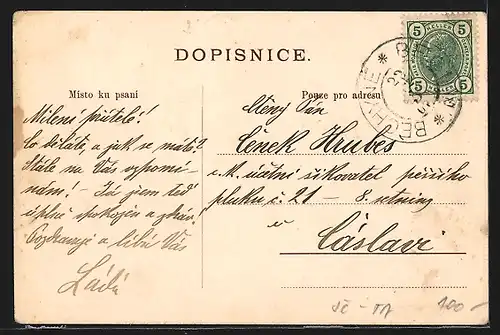 DOPISNICE.
Místo ku psaní
Pouze pro adresu
Milení přátelé!
Co děláte, a jak se máte?
Stále na Vás vzpomí-
nám! - Já jsem teď
úplně spokojen a zdráv.
Pozdravuje a líbá Vás
Láďa
Ctěný Pán
Čeněk Hubes
účetní šikovatel pěšího
pluku č. 21 - 8. setniny
v
Čáslavi
5 HELLER 5
5 5
BECHYNĚ
100-